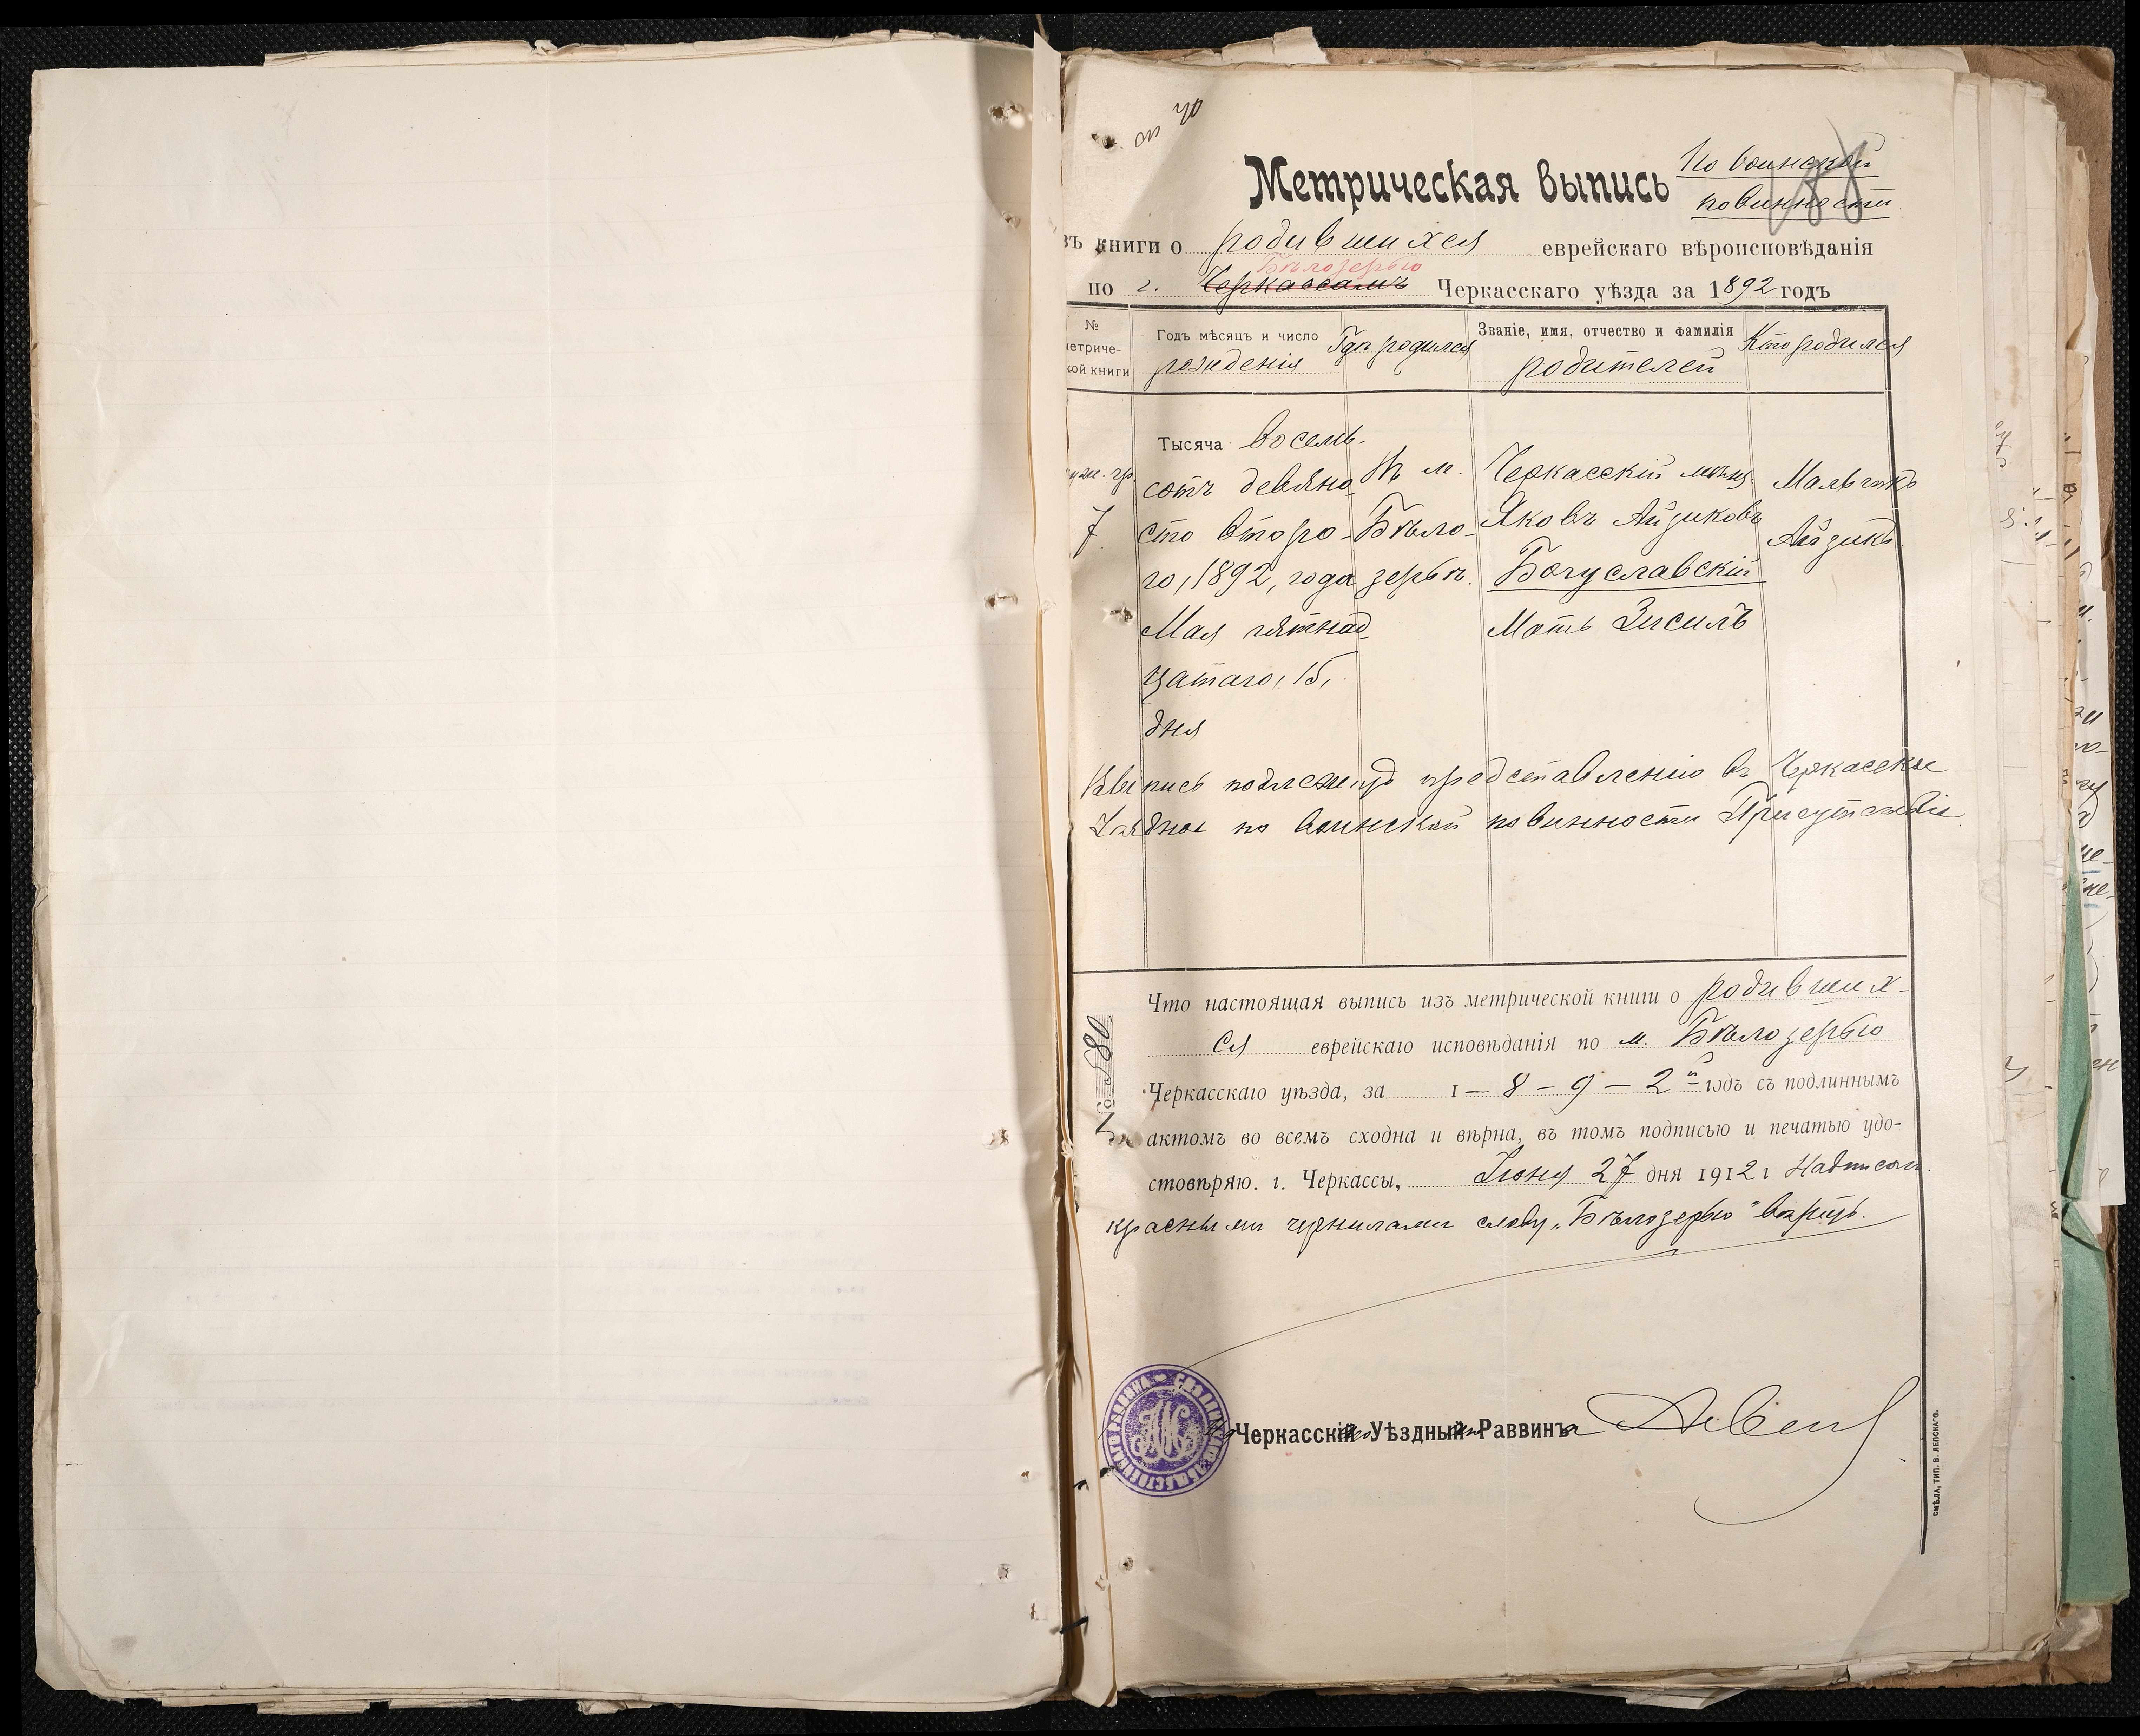 Метрическая выпись
По воинской
повинности
188
зъ книги о родившихся еврейскаго вѣроисповѣданія
Бѣлозерью
по г. Черкассамъ Черкасскаго уѣзда за 1892 годъ
№
метриче-
кой книги
Годъ мѣсяцъ и число
рожденія
Гдѣ родился
Званіе, имя, отчество и фамилія
родителей
Кто родился
муж. гр.
7.
Тысяча восемь-
сотъ девяно-
сто второ-
го, 1892, года
Мая пятнад-
цатаго, 15,
дня
Въ м.
Бѣло-
зерьѣ.
Черкасскій мѣщ.
Яковъ Айзиковъ
Богуславскій
Мать Зисиль
Мальчикъ
Айзикъ
Выпись подлежитъ представленію въ Черкасское
Уѣздное по воинской повинности Присутствіе.
№ 580
Что настоящая выпись изъ метрической книги о родивших-
ся еврейскаго исповѣданія по м. Бѣлозерью
Черкасскаго уѣзда, за 1–8–9–2й годъ съ подлиннымъ
актомъ во всемъ сходна и вѣрна, въ томъ подписью и печатью удо-
стовѣряю. г. Черкассы, Іюня 27 дня 1912 г Надписан.
красными чернилами слову „Бѣлозерью" вѣрить.
Черкасскій Уѣздный Раввинъ
СМѢЛА, ТИП. В. ЛЕПСКАГО.